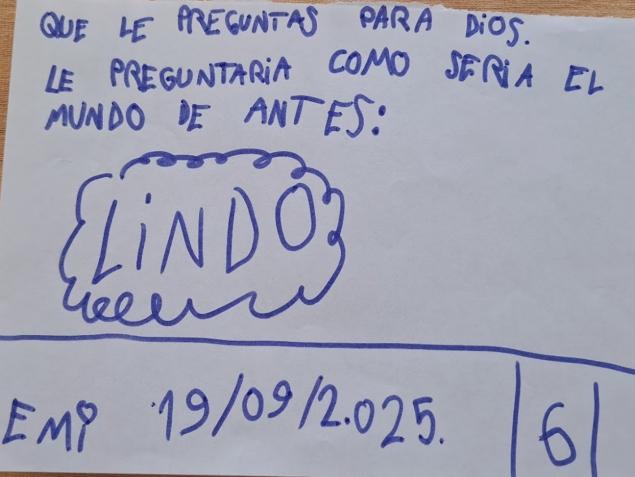 QUE LE PREGUNTAS PARA DiOS.
LE PREGUNTARiA COMO SERiA EL
MUNDO DE ANTES:
LiNDO
EMi 19/09/2.025. |6|